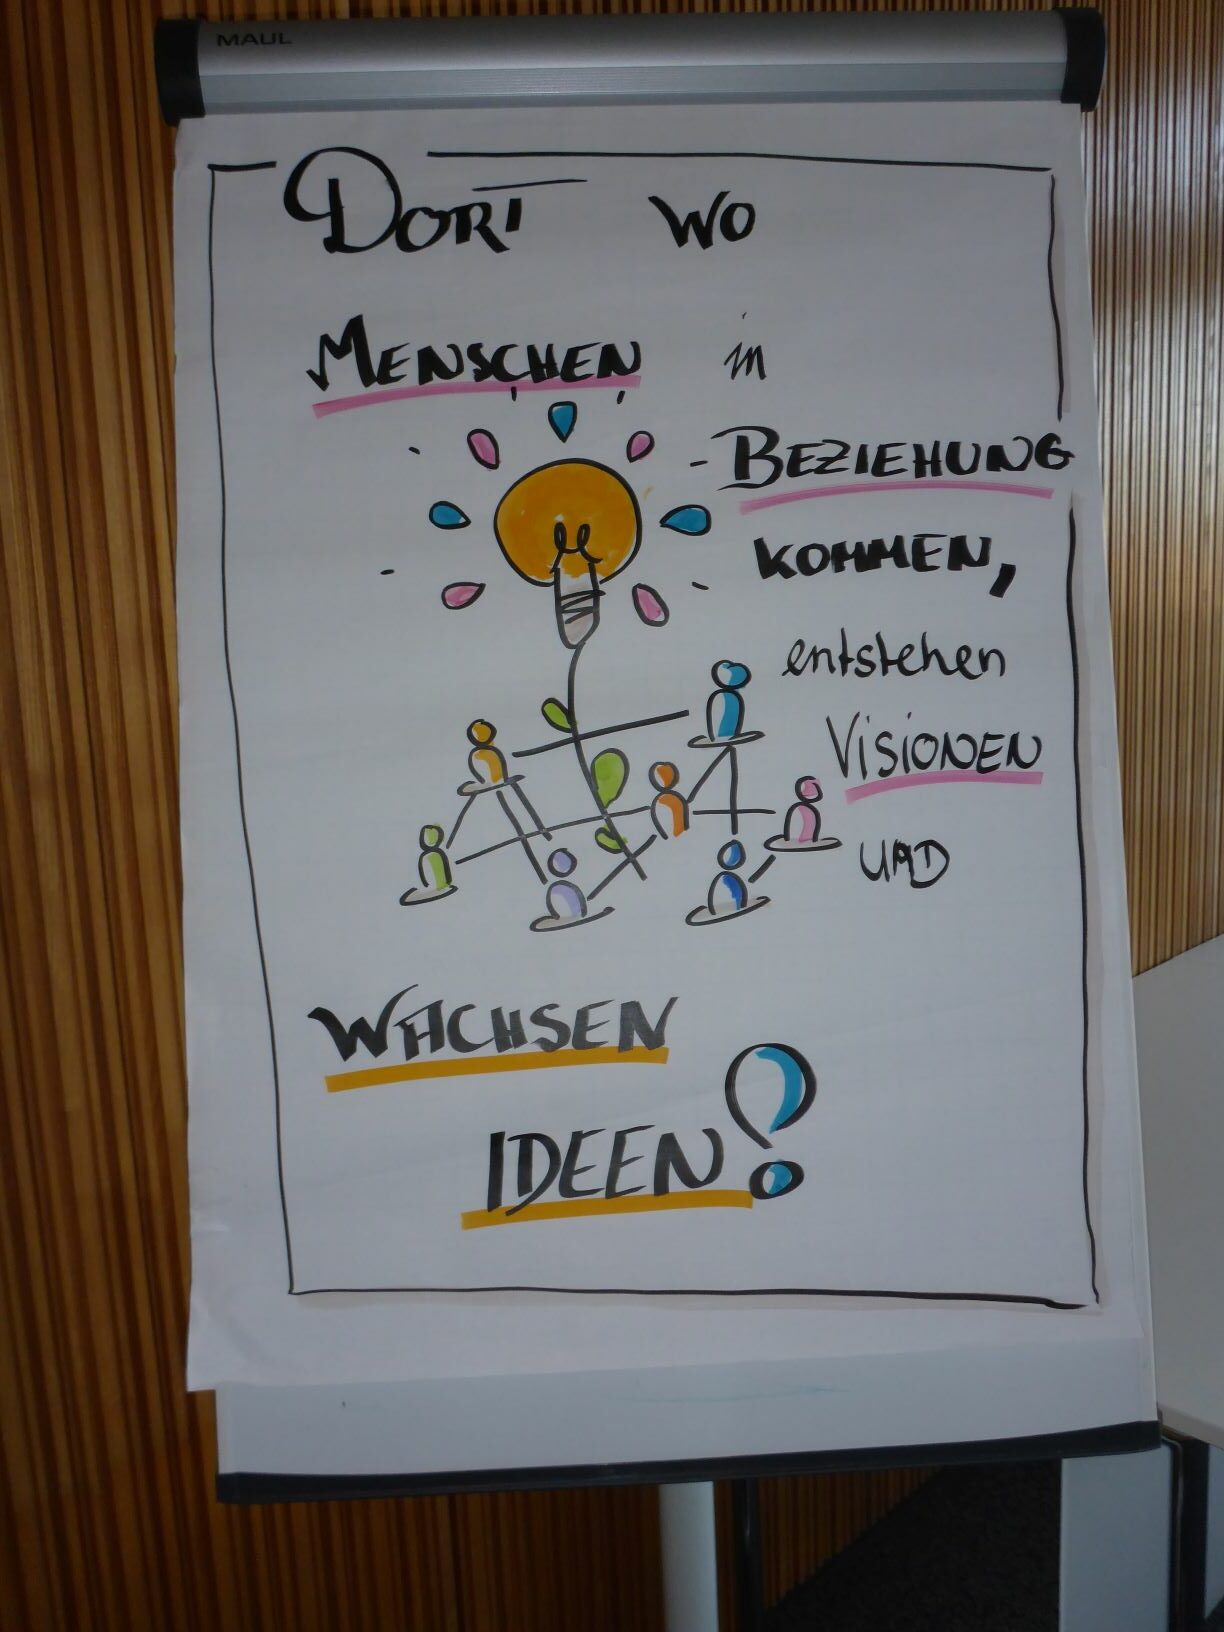 MAUL
DORT WO
MENSCHEN in
BEZIEHUNG
KOMMEN,
entstehen
VISIONEN
UND
WACHSEN
IDEEN!